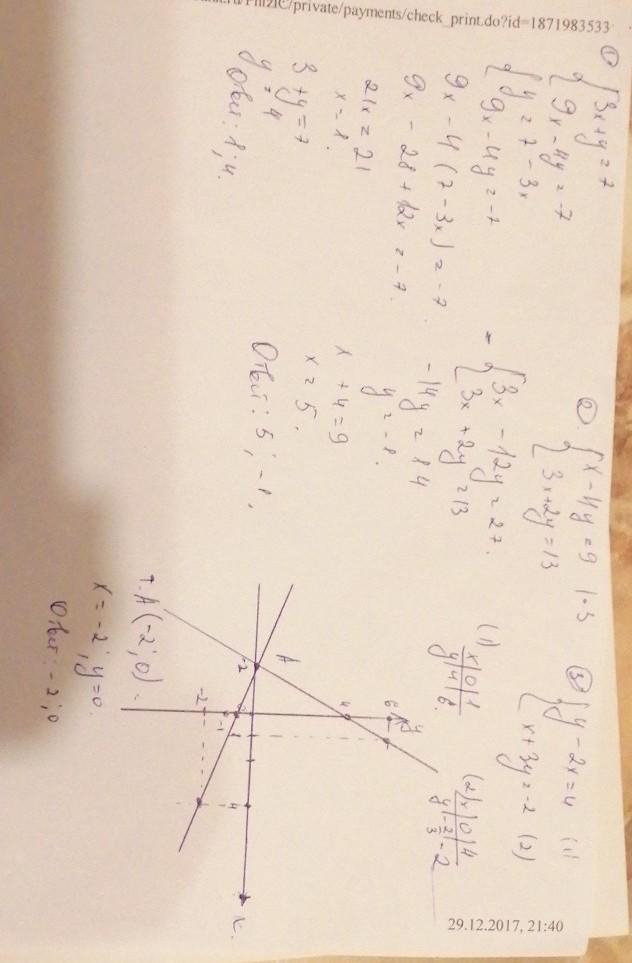 /private/payments/check_print.do?id=1871983533
①
{ 3x+y=7
{ 9x-4y=-7
{ y=7-3x
{ 9x-4y=-7
9x-4(7-3x)=-7
9x-28+12x=-7.
21x=21
x=1.
3+y=7
y=4
Ответ: 1;4.
②.
{ x-4y=9 |·3
{ 3x+2y=13
- { 3x-12y=27.
{ 3x+2y=13
-14y=14
y=-1.
x+4=9
x=5.
Ответ: 5;-1.
③
{ y-2x=4 (1)
{ x+3y=-2 (2)
(1) x|0|1
y|4|6.
(2) x|0|4
y|-2/3|-2
6
y
4
A
-2
1
4
x.
-1
-2
т.A(-2;0).
x=-2; y=0.
Ответ: -2;0
29.12.2017, 21:40